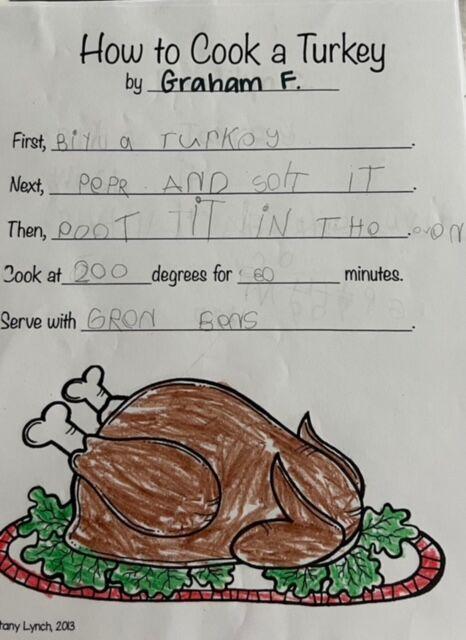 How to Cook a Turkey
by Graham F.
First, BiY a TURKey.
Next, PePR AND SOlT iT.
Then, POOT iT iN THe OVON.
Cook at 200 degrees for 60 minutes.
Serve with GReN BeNS.
tany Lynch, 2013